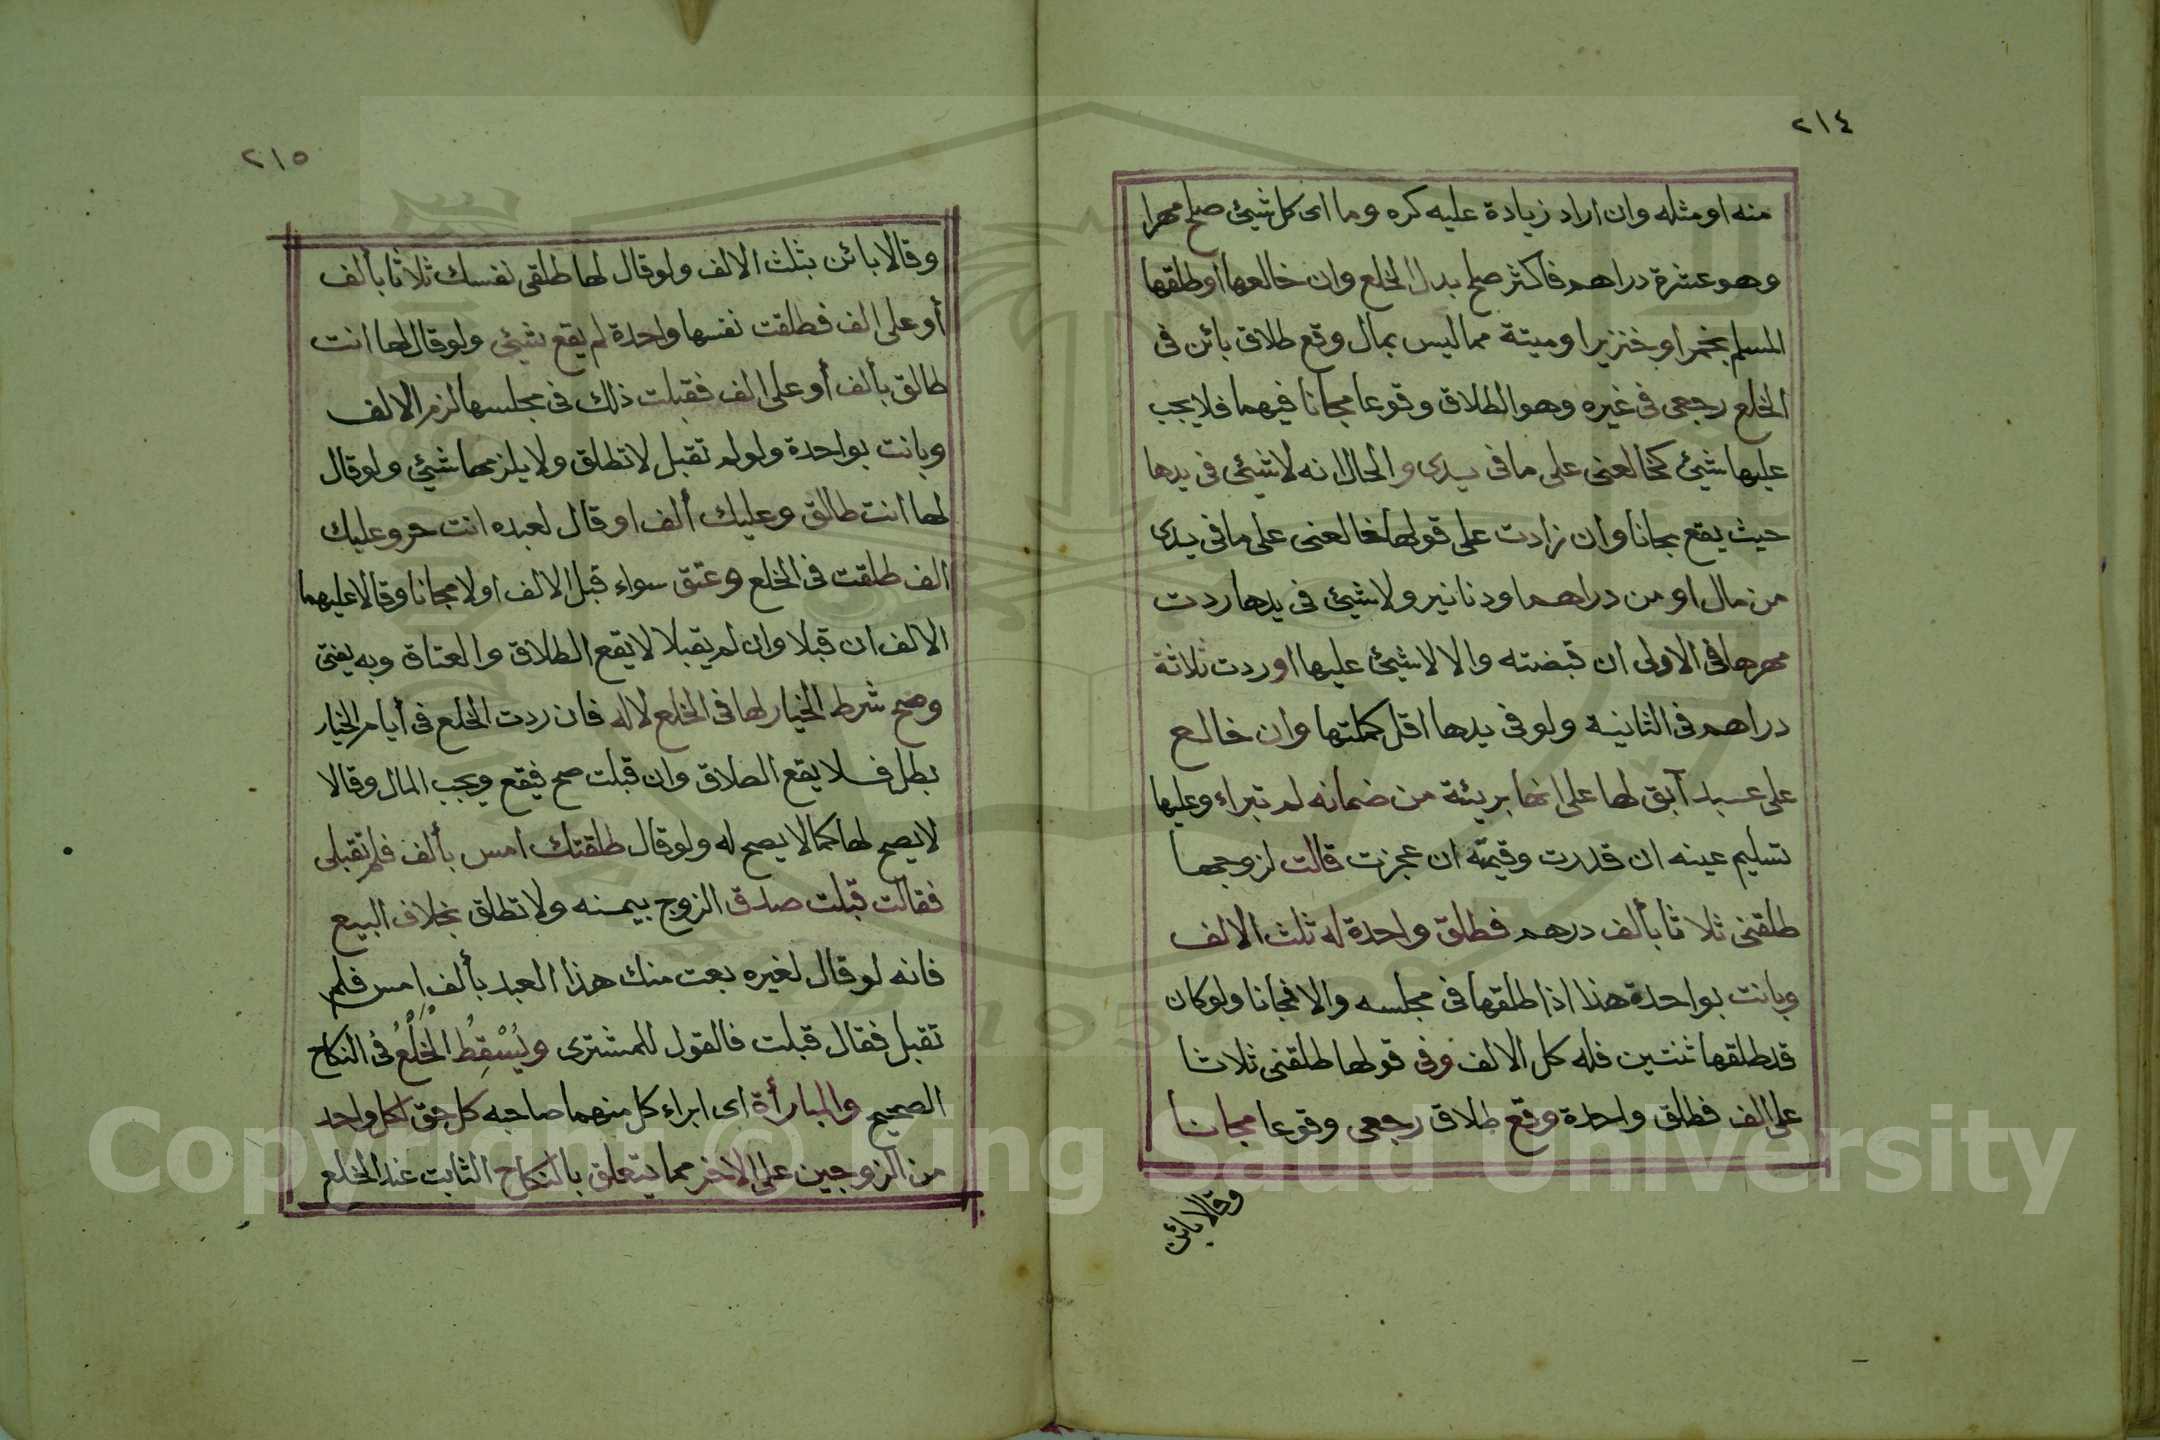 ٢١٤
منه او مثله وان اراد زيادة عليه كره وما اى كل شيئ صلح مهرا
وهو عشرة دراهم فاكثر صلح بدل الخلع وان خالعها او طلقها
المسلم بخمر او بخنزير او ميتة مما ليس بمال وقع طلاق بائن فى
الخلع رجعى فى غيره وهو الطلاق وقوعا مجانا فيهما فلا يجب
عليها شيئ كخالعنى على ما فى يدى والحال انه لا شيئ فى يدها
حيث يقع مجانا وان زادت على قولها خالعنى على ما فى يدى
من مال او من دراهم او دنانير ولا شيئ فى يدها ردت
مهرها فى الاولى ان قبضته والا لا شيئ عليها او ردت ثلاثة
دراهم فى الثانية ولو فى يدها اقل كملتها وان خالع
على عبد آبق لها على انها بريئة من ضمانه لم تبراء وعليها
تسليم عينه ان قدرت وقيمته ان عجزت قالت لزوجها
طلقنى ثلاثا بألف درهم فطلق واحدة له ثلث الالف
وبانت بواحدة هذا اذا طلقها فى مجلسه والا فمجانا ولو كان
قد طلقها ثنتين فله كل الالف وفى قولها طلقنى ثلاثا
على الف فطلق واحدة وقع طلاق رجعى وقوعا مجانا
وقالا بائن
٢١٥
وقالا بائن بثلث الالف ولو قال لها طلقى نفسك ثلاثا بألف
أو على الف فطلقت نفسها واحدة لم يقع شيئ ولو قال لها انت
طالق بألف أو على الف فقبلت ذلك فى مجلسها لزم الالف
وبانت بواحدة ولو لم تقبل لا تطلق ولا يلزمها شيئ ولو قال
لها انت طالق وعليك ألف او قال لعبده انت حر وعليك
الف طلقت فى الخلع وعتق سواء قبل الالف او لا مجانا وقالا عليهما
الالف ان قبلا وان لم يقبلا لا يقع الطلاق والعتاة وبه يفتى
وصح شرط الخيار لها فى الخلع لا له فان ردت الخلع فى أيام الخيار
بطل فلا يقع الطلاق وان قبلت صح فيقع ويجب المال وقالا
لا يصح لها كما لا يصح له ولو قال طلقتك امس بألف فلم تقبلى
فقالت قبلت صدق الزوج بيمنه ولا تطلق بخلاف البيع
فانه لو قال لغيره بعت منك هذا العبد بألف امس فلم
تقبل فقال قبلت فالقول للمشترى ويُسْقِطُ الخُلْعُ فى النكاح
الصحيح والمبارأة اى ابراء كل منهما صاحبه كل حق لكل واحد
من الزوجين على الاخر مما يتعلق بالنكاح الثابت عند الخلع
Copyright © King Saud University
1957